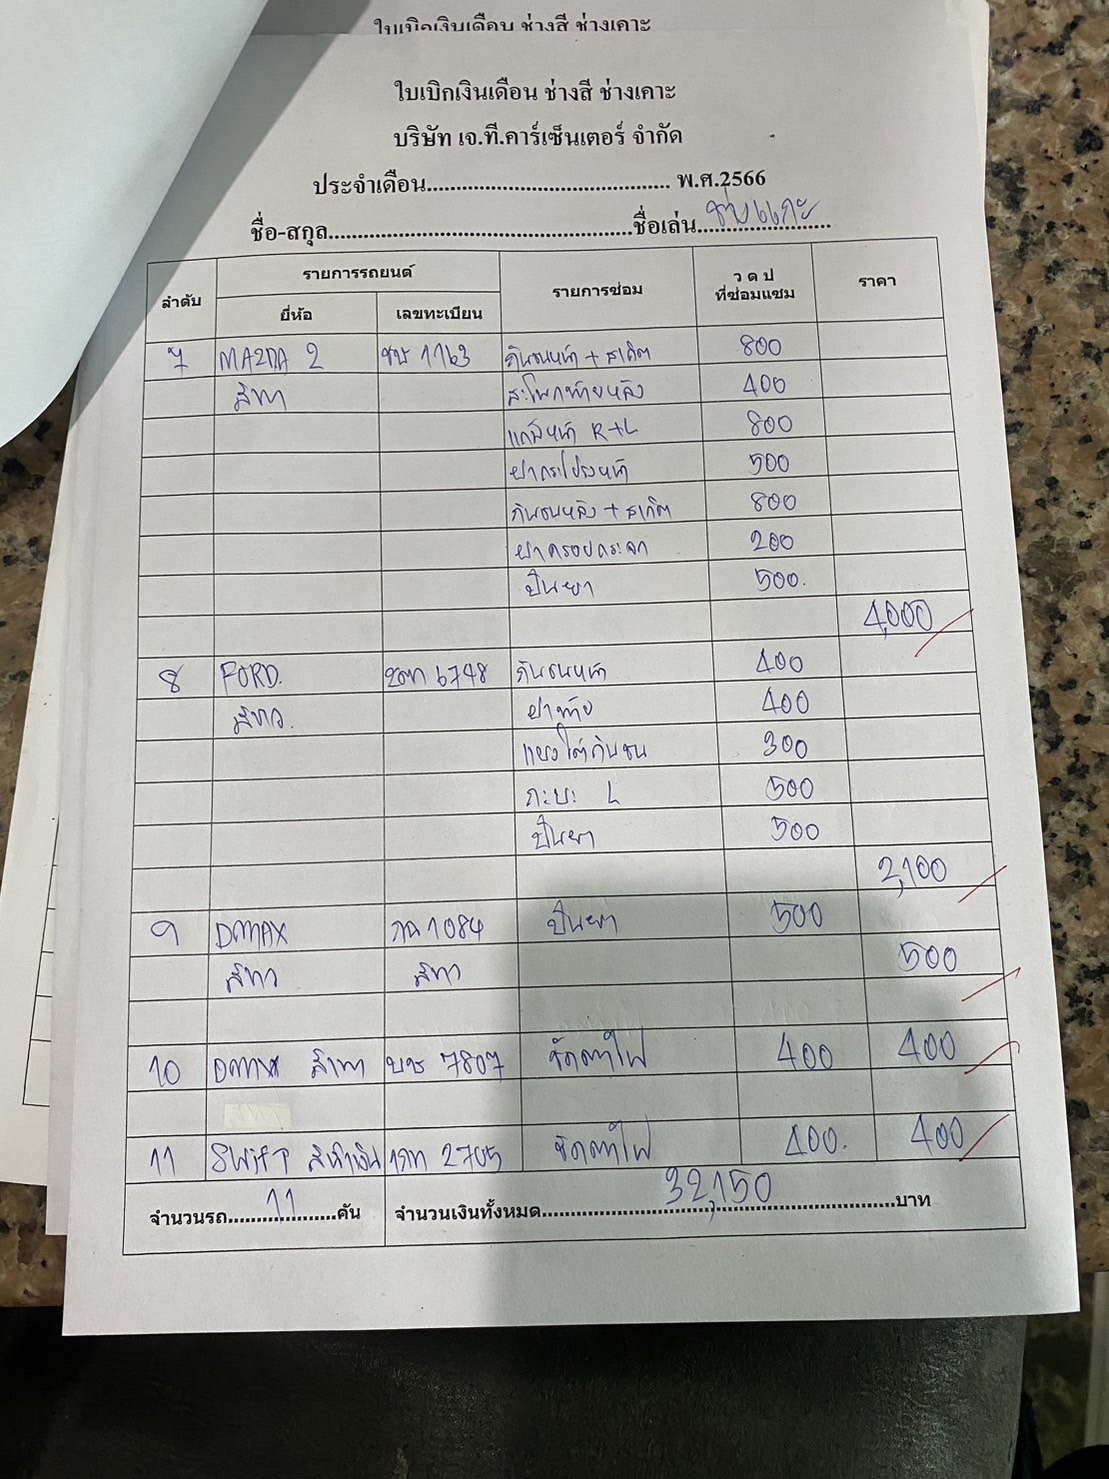 ใบเบิกเงินเดือน ช่างสี ช่างเคาะ
ใบเบิกเงินเดือน ช่างสี ช่างเคาะ
บริษัท เจ.ที.คาร์เซ็นเตอร์ จำกัด
ประจำเดือน.......................................... พ.ศ.2566
ชื่อ-สกุล....................................................ชื่อเล่น ช่างแกะ
ลำดับ รายการรถยนต์ รายการซ่อม ว ด ป ที่ซ่อมแซม ราคา
ยี่ห้อ เลขทะเบียน
7 MAZDA 2 ขษ 1163 กันชนหน้า + สเกิต 800
สีเทา สะโพกท้ายหลัง 400
แก้มหน้า R+L 800
ฝากระโปรงหน้า 500
กันชนหลัง + สเกิต 800
ฝาครอบกระจก 200
ปั่นยา 500.
4,000
8 FORD. 2ฒท 6748 กันชนหน้า 400
สีขาว. ฝาท้าย 400
แผงใต้กันชน 300
กะบะ L 500
ปั่นยา 500
2,100
9 DMAX 1084 ปั่นยา 500
สีขาว สีขาว 500
10 DMAX สีเทา บษ 7807 ขัดตาไฟ 400 400
11 SWIFT สีน้ำเงิน 1กท 2705 ขัดตาไฟ 400. 400
จำนวนรถ 11 คัน จำนวนเงินทั้งหมด 32,150 บาท